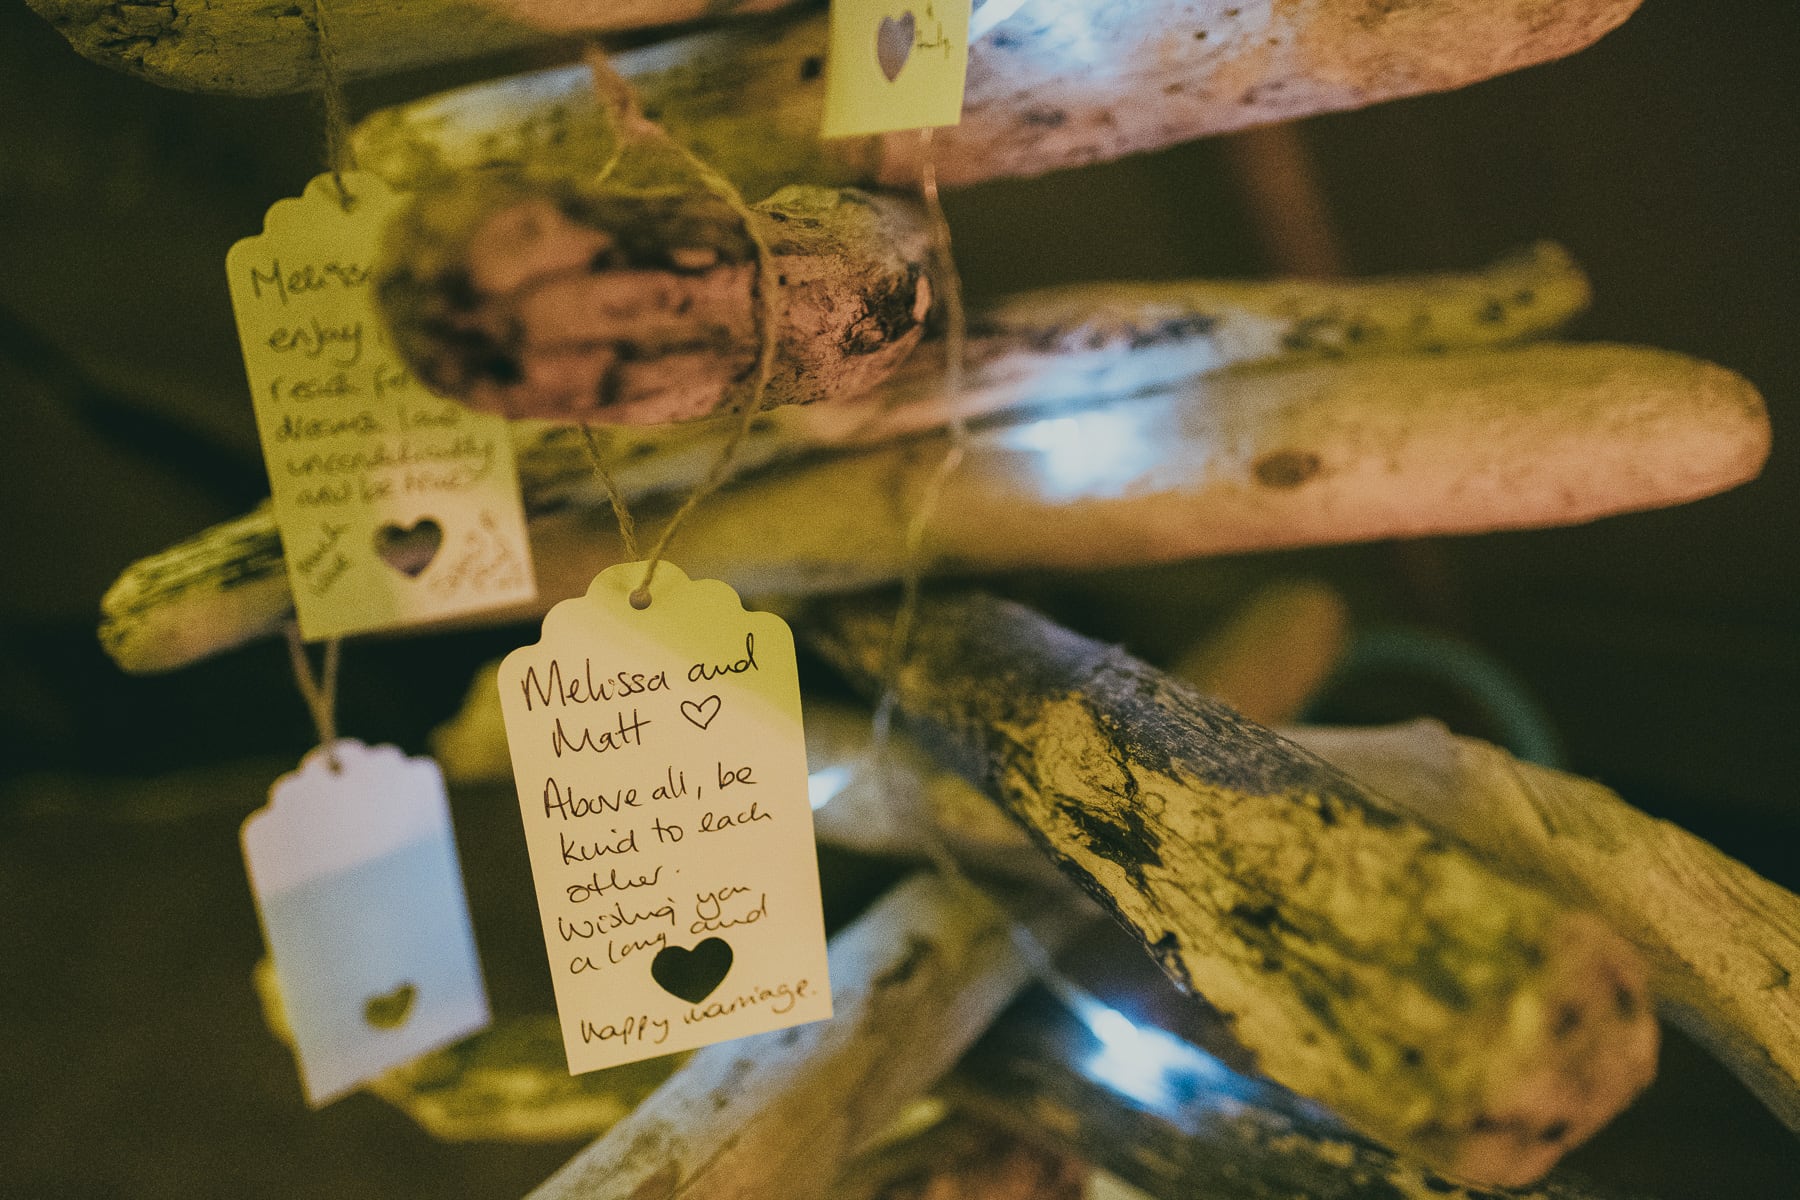 Melissa
enjoy
reach for
dreams love
unconditionally
and be true
Melissa and
Matt ♡
Above all, be
kind to each
other.
Wishing you
a long and
happy marriage.
family